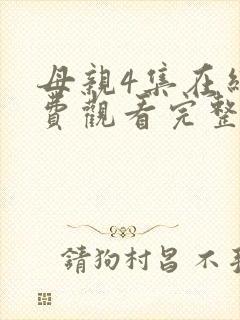 母親4集在線
費觀看完整
請狗村呂 不